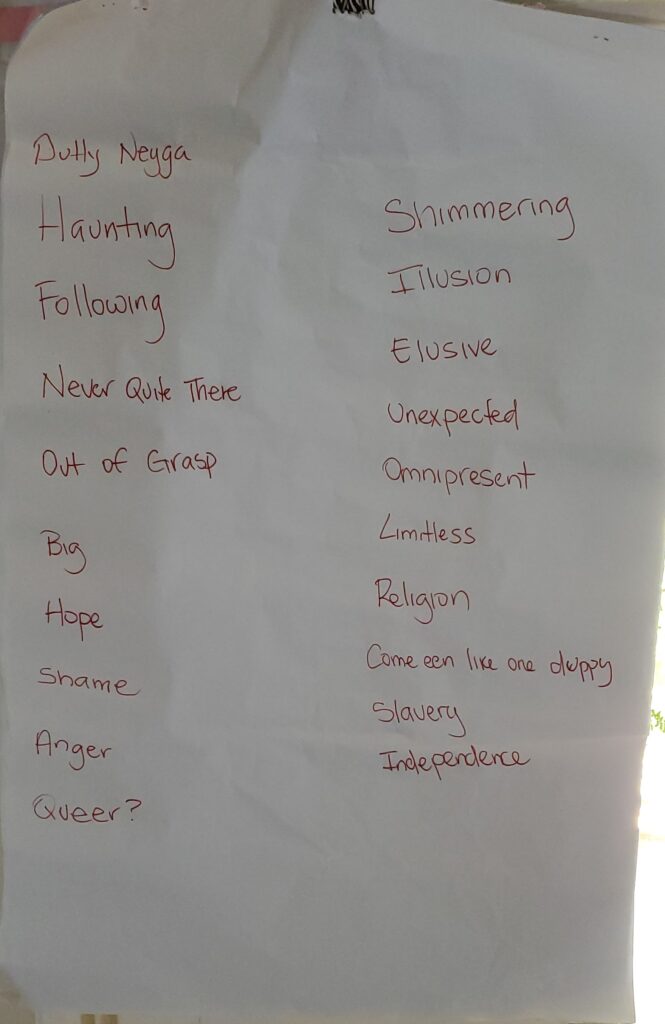 Dutty Neyga
Haunting
Following
Never Quite There
Out of Grasp
Big
Hope
Shame
Anger
Queer?
Shimmering
Illusion
Elusive
Unexpected
Omnipresent
Limitless
Religion
Come een like one duppy
Slavery
Independence